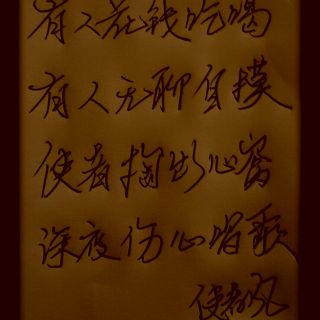 有人花钱吃喝
有人无聊自摸
使者掏出心窝
深夜伤心唱歌